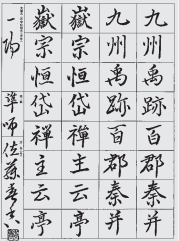 九州禹跡百郡秦并
九州禹跡百郡秦并
嶽宗恒岱禪主云亭
嶽宗恒岱禪主云亭
一陽
準師 佐藤春吉